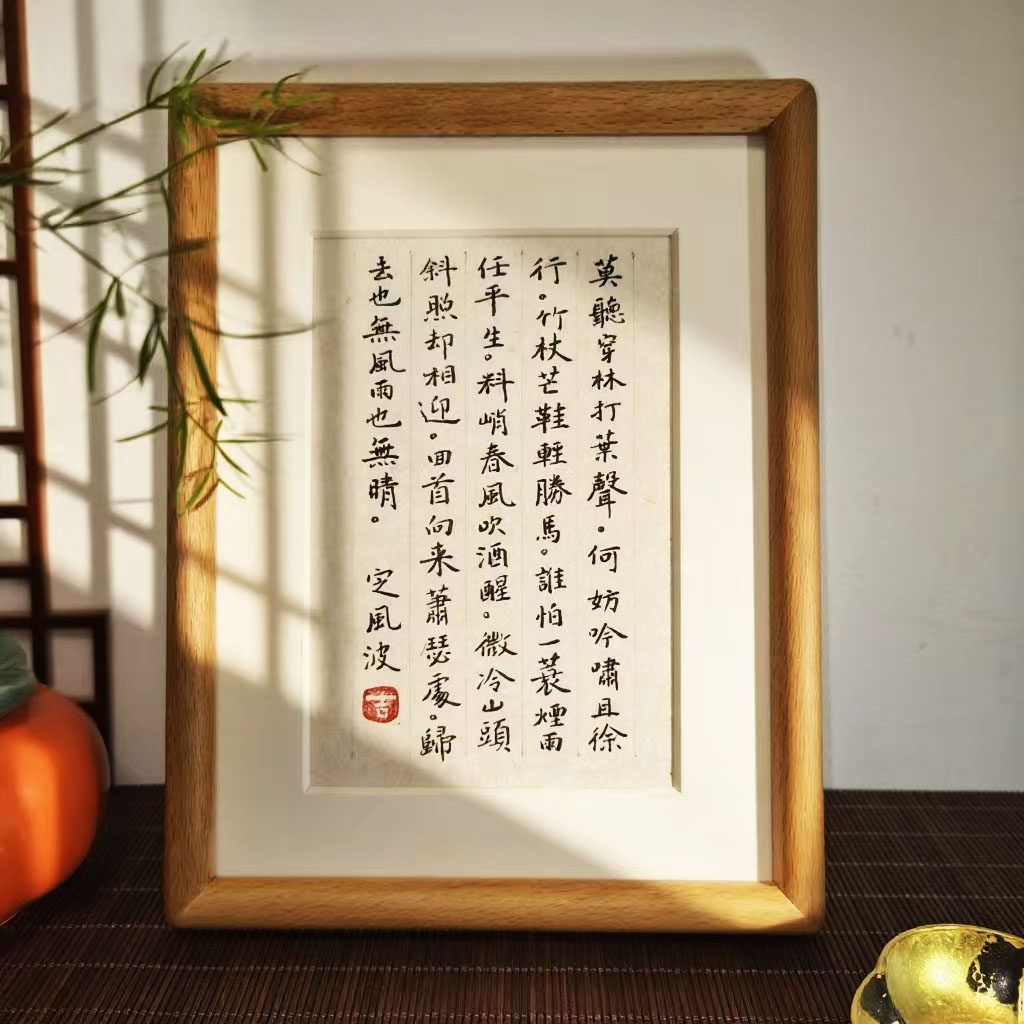 莫聽穿林打葉聲。何妨吟嘯且徐
行。竹杖芒鞋輕勝馬。誰怕一蓑煙雨
任平生。料峭春風吹酒醒。微冷山頭
斜照却相迎。回首向来蕭瑟處。歸
去也無風雨也無晴。 定風波